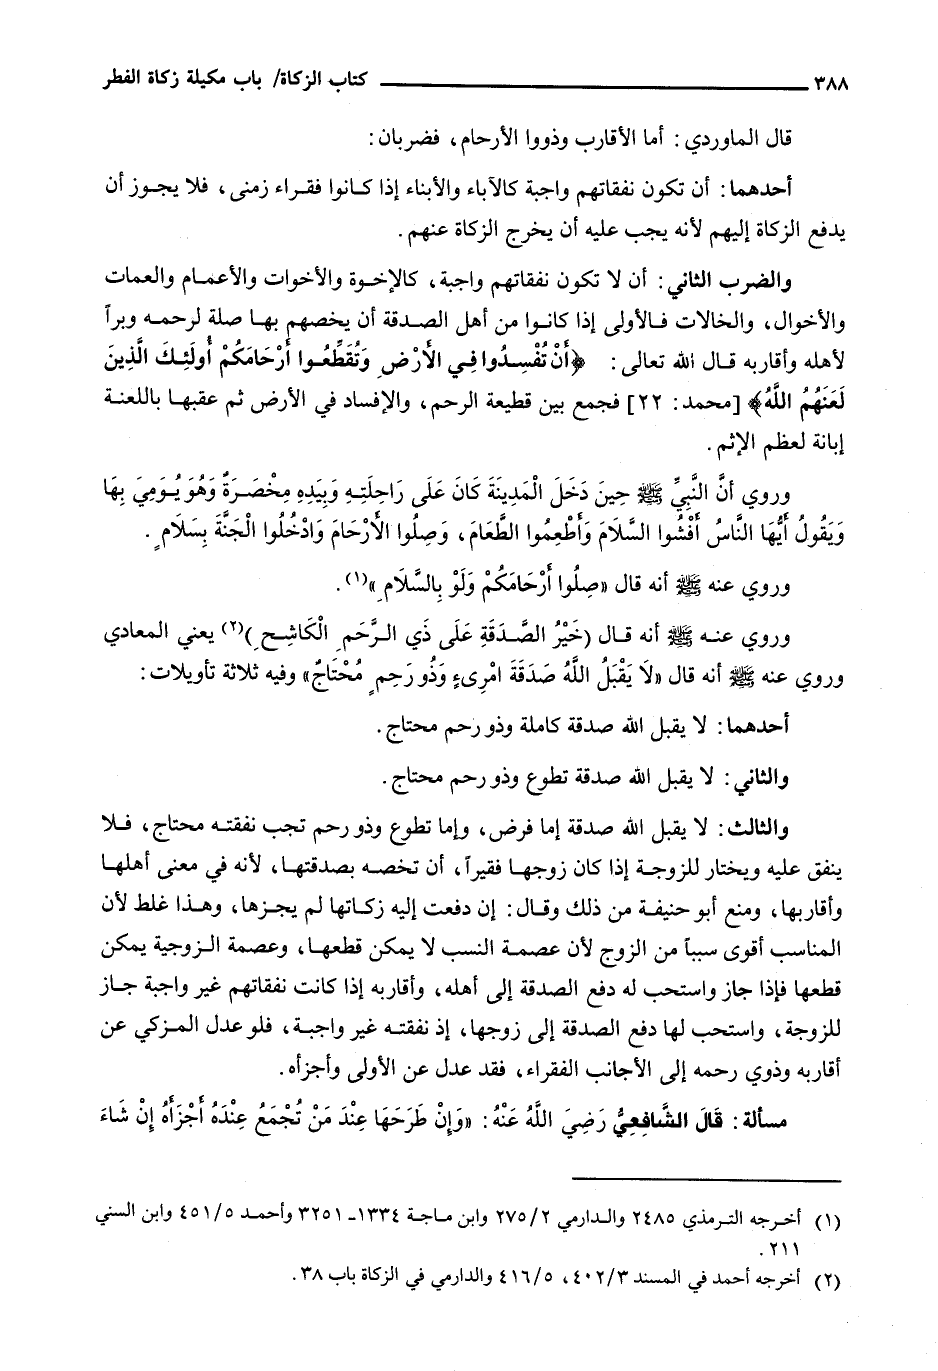 ٣٨٨ كتاب الزكاة/ باب مكيلة زكاة الفطر
قال الماوردي: أما الأقارب وذووا الأرحام، فضربان:
أحدهما: أن تكون نفقاتهم واجبة كالآباء والأبناء إذا كانوا فقراء زمنى، فلا يجوز أن
يدفع الزكاة إليهم لأنه يجب عليه أن يخرج الزكاة عنهم.
والضرب الثاني: أن لا تكون نفقاتهم واجبة، كالإخوة والأخوات والأعمام والعمات
والأخوال، والخالات فالأولى إذا كانوا من أهل الصدقة أن يخصهم بها صلة لرحمه وبراً
لأهله وأقاربه قال الله تعالى: ﴿أَنْ تُفْسِدُوا فِي الْأَرْضِ وَتُقَطِّعُوا أَرْحَامَكُمْ أُولَئِكَ الَّذِينَ
لَعَنَهُمُ اللَّهُ﴾ [محمد: ٢٢] فجمع بين قطيعة الرحم، والإفساد في الأرض ثم عقبها باللعنة
إبانة لعظم الإثم.
وروي أنَّ النَّبِيِّ ﷺ حِينَ دَخَلَ الْمَدِينَةَ كَانَ عَلَى رَاحِلَتِهِ وَبِيَدِهِ مِخْصَرَةٌ وَهُوَ يُومِيَ بِهَا
وَيَقُولُ أَيُّهَا النَّاسُ أَفْشُوا السَّلَامَ وَأَطْعِمُوا الطَّعَامَ، وَصِلُوا الْأَرْحَامَ وَادْخُلُوا الْجَنَّةَ بِسَلَامٍ.
وروي عنه ﷺ أنه قال «صِلُوا أَرْحَامَكُمْ وَلَوْ بِالسَّلَامِ»(١).
وروي عنه ﷺ أنه قال (خَيْرُ الصَّدَقَةِ عَلَى ذَي الرَّحَمِ الْكَاشِحِ)(٢) يعني المعادي
وروي عنه ﷺ أنه قال «لَا يَقْبَلُ اللَّهُ صَدَقَةَ امْرِىءٍ وَذُو رَحِمٍ مُحْتَاجٌ» وفيه ثلاثة تأويلات:
أحدهما: لا يقبل الله صدقة كاملة وذو رحم محتاج.
والثاني: لا يقبل الله صدقة تطوع وذو رحم محتاج.
والثالث: لا يقبل الله صدقة إما فرض، وإما تطوع وذو رحم تجب نفقته محتاج، فلا
ينفق عليه ويختار للزوجة إذا كان زوجها فقيراً، أن تخصه بصدقتها، لأنه في معنى أهلها
وأقاربها، ومنع أبو حنيفة من ذلك وقال: إن دفعت إليه زكاتها لم يجزها، وهذا غلط لأن
المناسب أقوى سبباً من الزوج لأن عصمة النسب لا يمكن قطعها، وعصمة الزوجية يمكن
قطعها فإذا جاز واستحب له دفع الصدقة إلى أهله، وأقاربه إذا كانت نفقاتهم غير واجبة جاز
للزوجة، واستحب لها دفع الصدقة إلى زوجها، إذ نفقته غير واجبة، فلو عدل المزكي عن
أقاربه وذوي رحمه إلى الأجانب الفقراء، فقد عدل عن الأولى وأجزأه.
مسألة: قَالَ الشَّافِعِيُّ رَضِيَ اللَّهُ عَنْهُ: «وَإِنْ طَرَحَهَا عِنْدَ مَنْ تُجْمَعُ عِنْدَهُ أَجْزَأَهُ إِنْ شَاءَ
(١) أخرجه الترمذي ٢٤٨٥ والدارمي ٢٧٥/٢ وابن ماجة ١٣٣٤ـ ٣٢٥١ وأحمد ٤٥١/٥ وابن السني
٢١١.
(٢) أخرجه أحمد في المسند ٤٠٢/٣، ٤١٦/٥ والدارمي في الزكاة باب ٣٨.